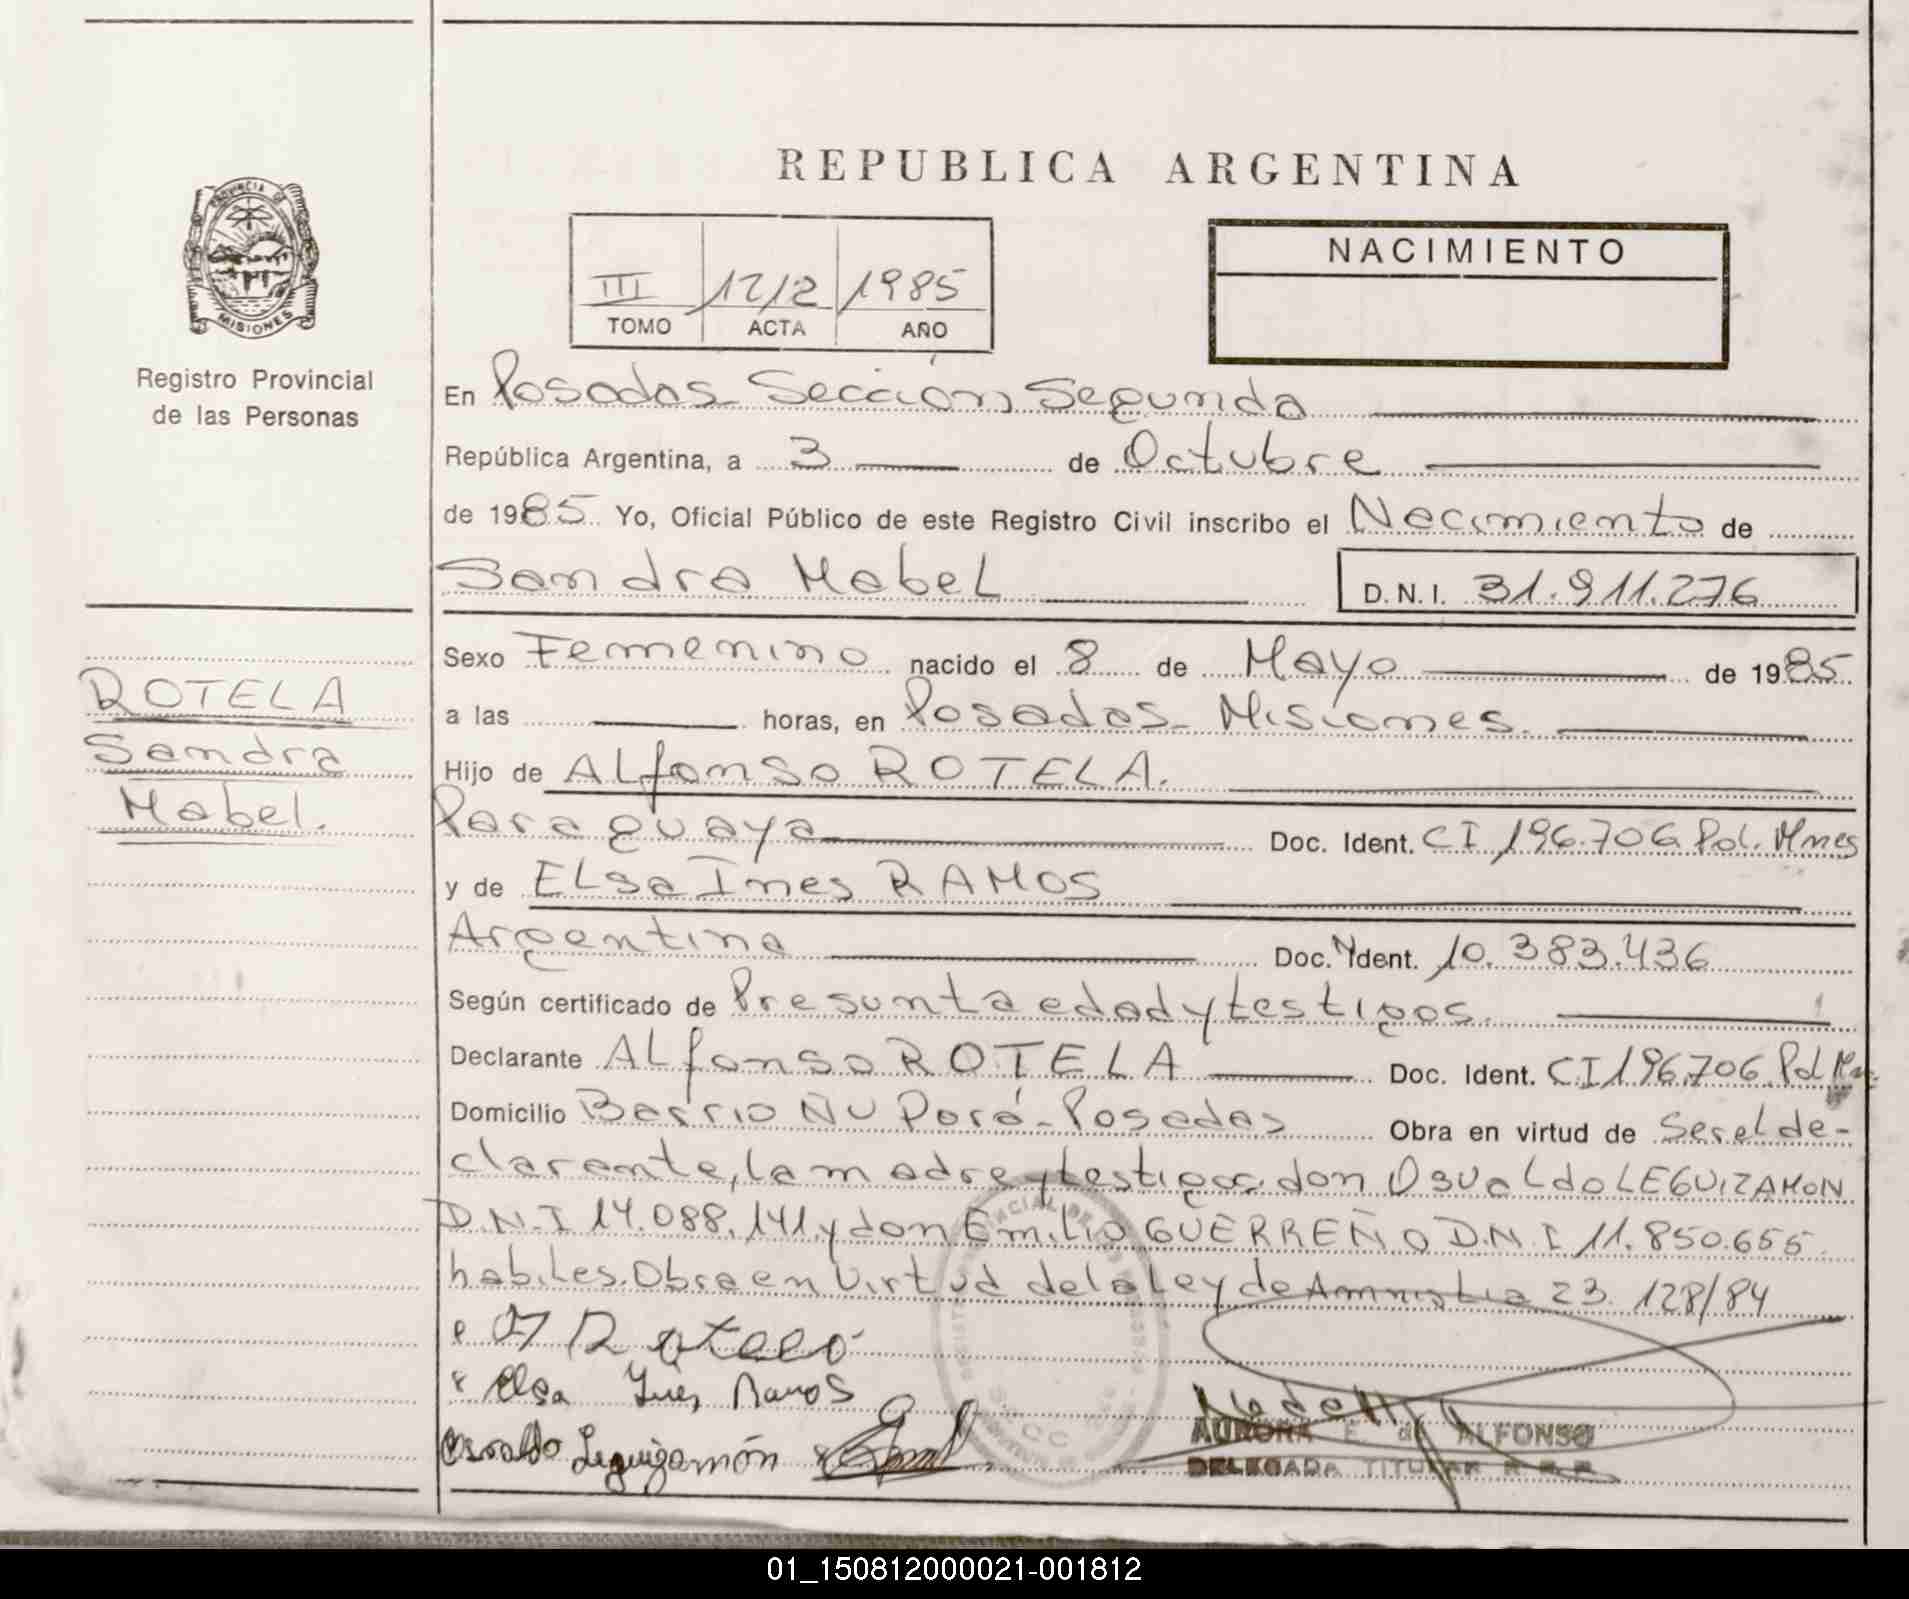 REPUBLICA ARGENTINA
PROVINCIA DE
MISIONES
Registro Provincial
de las Personas
III 1212 1985
TOMO ACTA AÑO
NACIMIENTO
En Posadas Sección Segunda
República Argentina, a 3 de Octubre
de 1985 Yo, Oficial Público de este Registro Civil inscribo el Nacimiento de
Sandra Mabel D.N.I. 31.911.276
Sexo Femenino nacido el 8 de Mayo de 1985
a las horas, en Posadas - Misiones.
Hijo de Alfonso ROTELA.
Paraguaya Doc. Ident. CI 196.706 Pol. Mnes
y de Elsa Ines RAMOS
Argentina Doc. Ident. 10.383.436
Según certificado de Presunta edad y testigos.
Declarante Alfonso ROTELA Doc. Ident. CI 196.706 Pol
Domicilio Barrio Ñu Porá - Posadas Obra en virtud de Ser el de-
clarante, la madre y testigos don Osvaldo LEGUIZAMON
D.N.I 14.088.141 y don Emilio GUERREÑO D.N.I 11.850.655
habiles. Obra en Virtud de la Ley de Amnistia 23.128/84
ROTELA
Sandra
Mabel.
A Rotela
Elsa Ines Ramos
Osvaldo Leguizamón
AURORA E. de ALFONSO
DELEGADA TITULAR R.P.P.
01_150812000021-001812